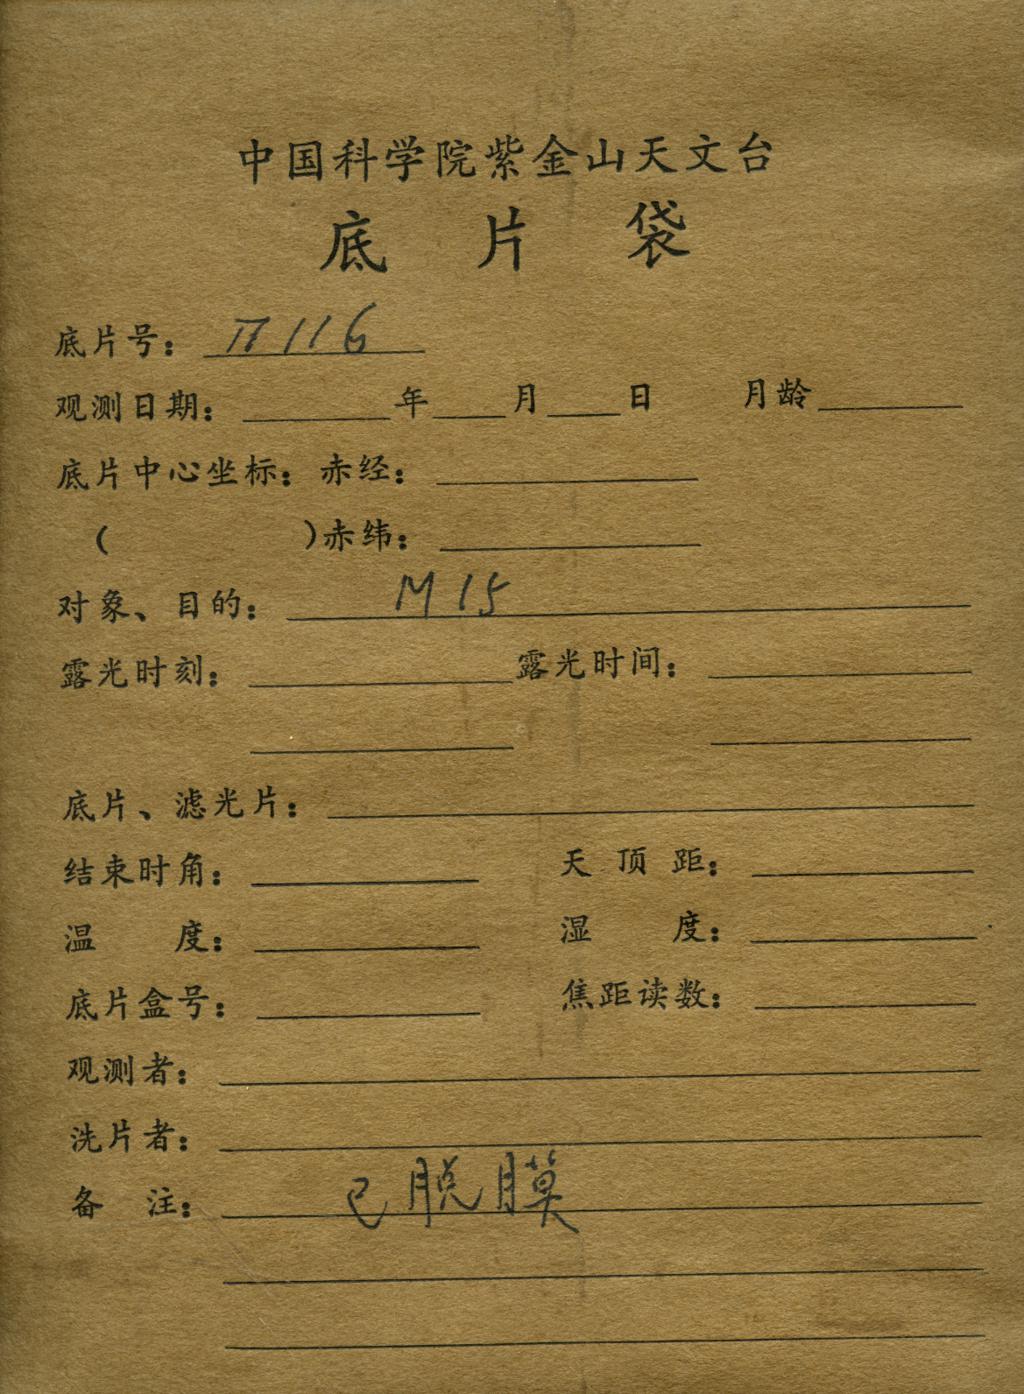 中国科学院紫金山天文台
底片袋
底片号：Π116
观测日期：年月日 月龄
底片中心坐标：赤经：
( )赤纬：
对象、目的：M15
露光时刻： 露光时间：
底片、滤光片：
结束时角： 天顶距：
温度： 湿度：
底片盒号： 焦距读数：
观测者：
洗片者：
备注：已脱膜